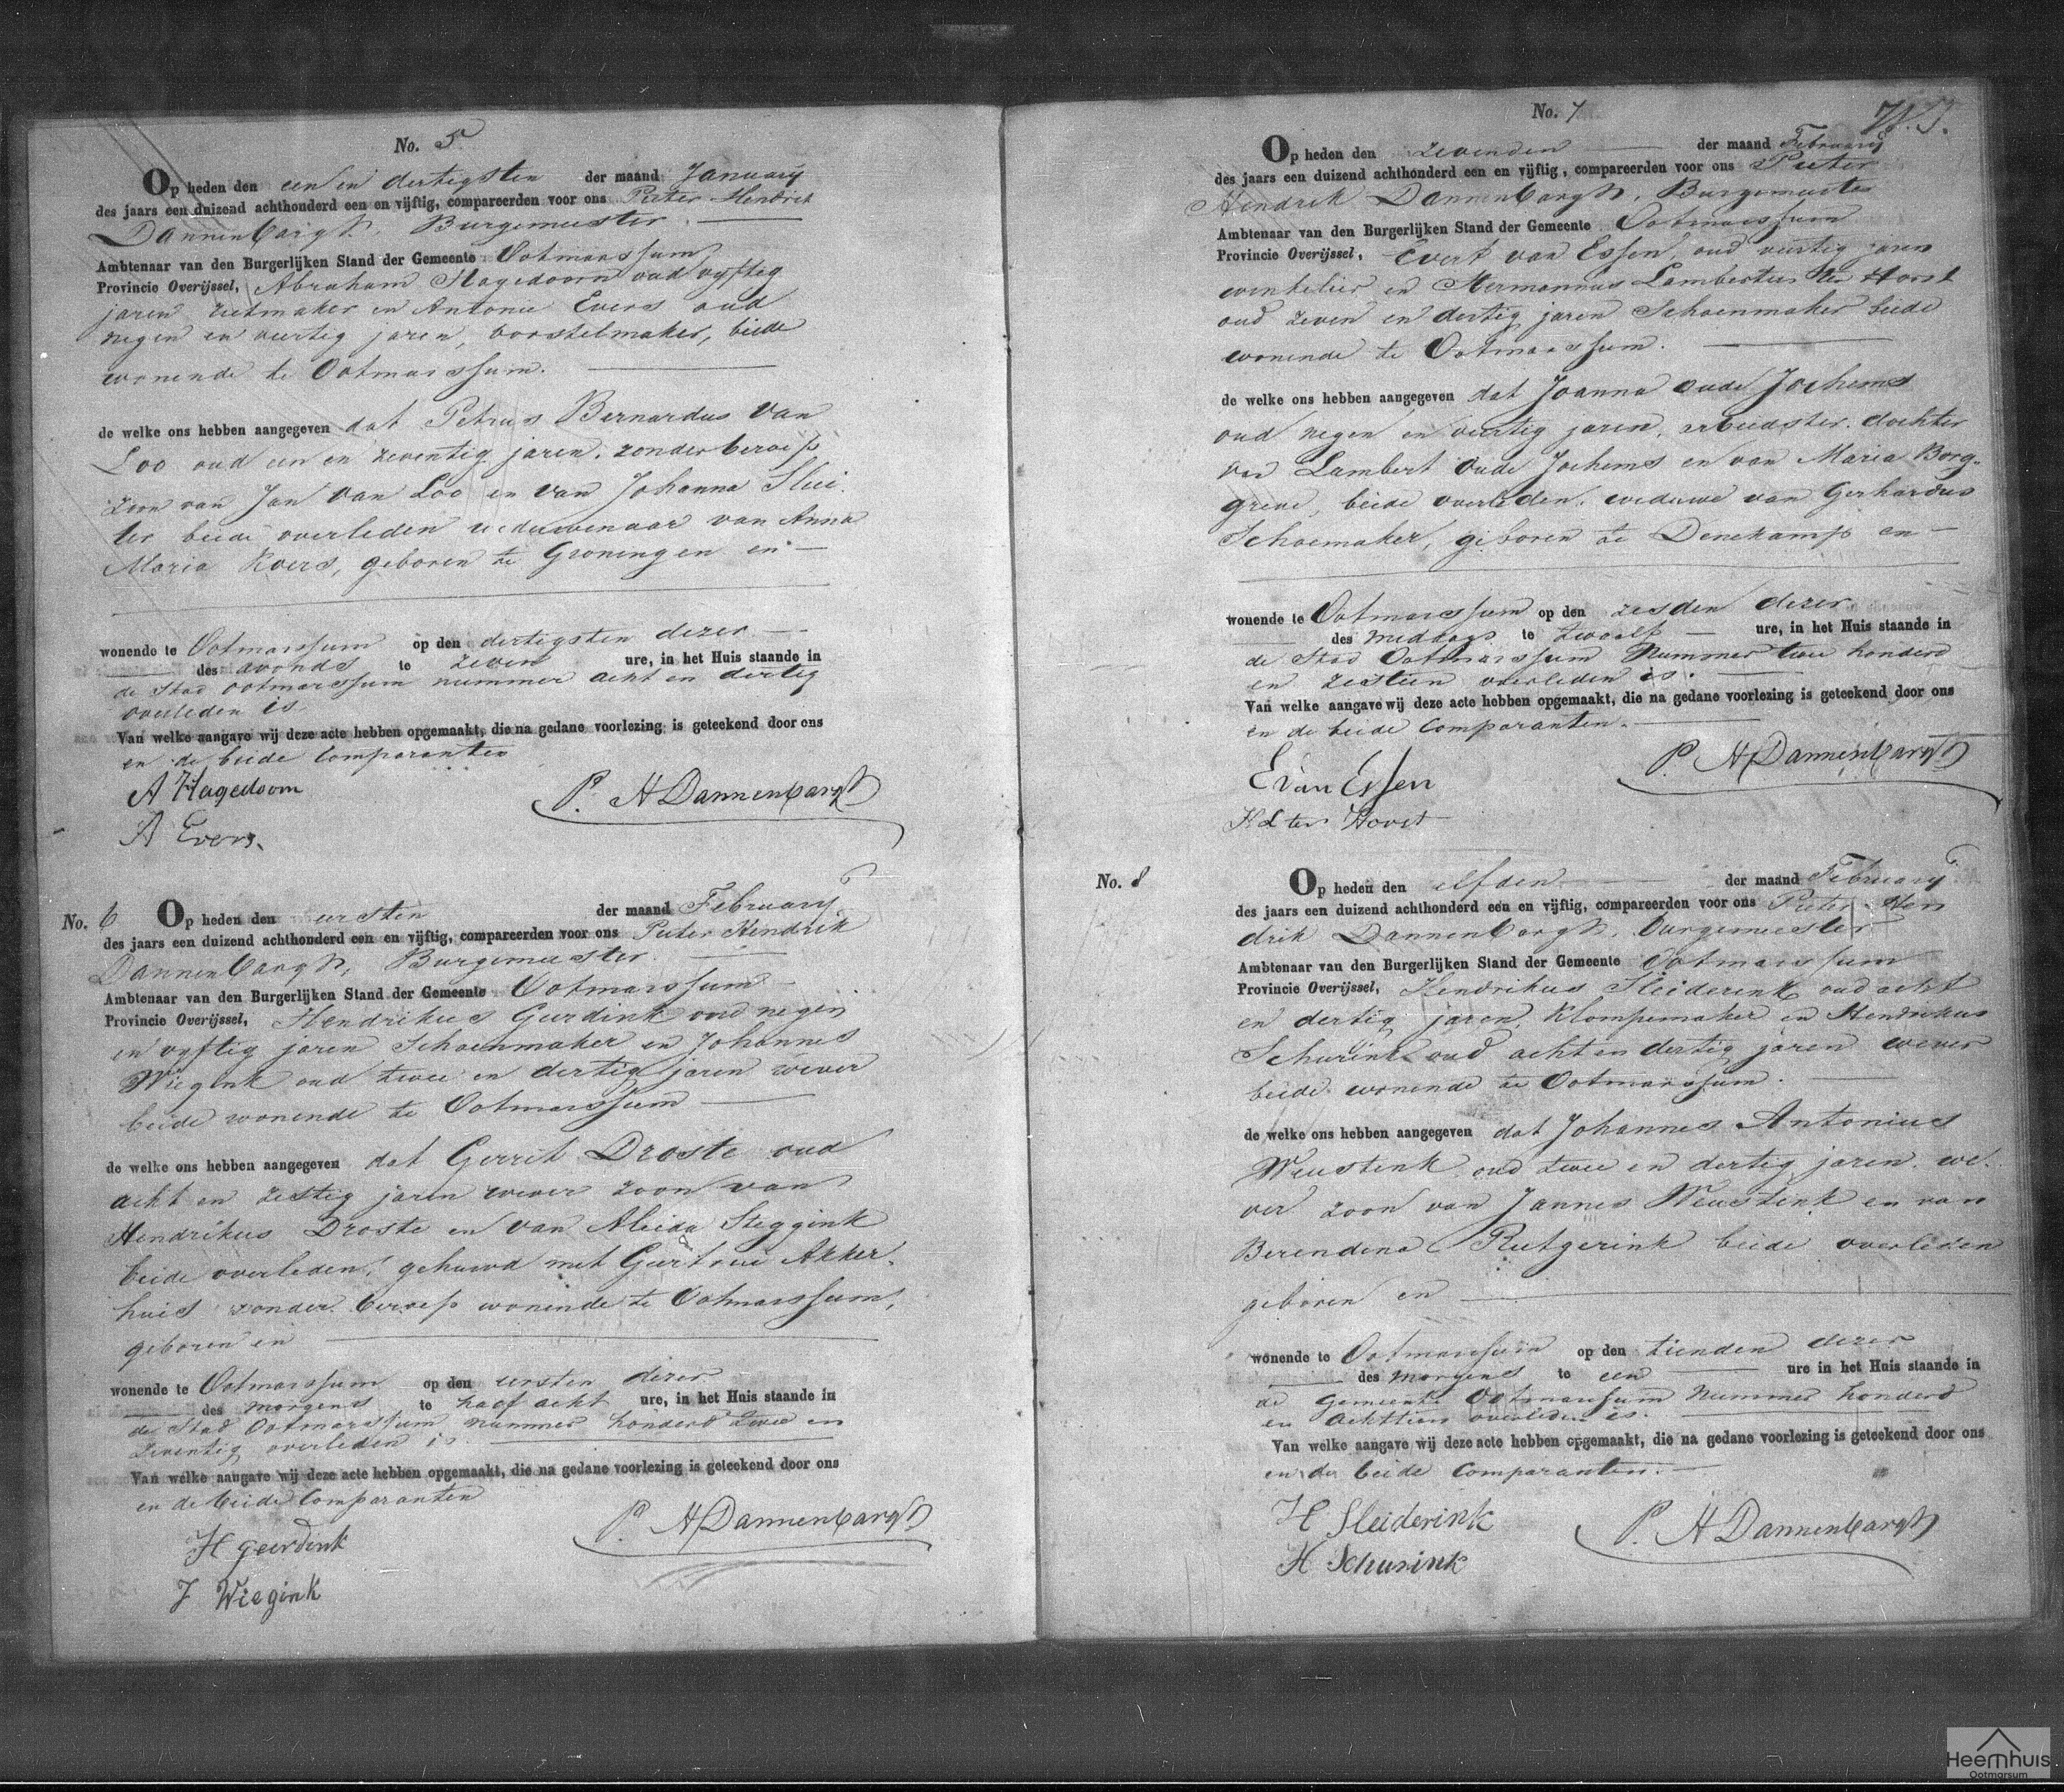 No. 5
Op heden den een en dertigsten der maand January
des jaars een duizend achthonderd een en vijftig, compareerden voor ons Pieter Hendrik
Dannenbargh, Burgemeester
Ambtenaar van den Burgerlijken Stand der Gemeente Ootmarssum
Provincie Overijssel, Abraham Hagedoorn oud vyftig
jaren zeefmaker en Antonie Evers oud
negen en veertig jaren, borstelmaker, beide
wonende te Ootmarssum.
de welke ons hebben aangegeven dat Petrus Bernardus van
Loo oud een en zeventig jaren, zonder beroep
zoon van Jan van Loo en van Johanna Slui
ter beide overleden weduwenaar van Anna
Maria Koers, geboren te Groningen en
wonende te Ootmarssum op den dertigsten dezer
des avonds te zeven ure, in het Huis staande in
de Stad Ootmarssum nummer acht en dertig
overleden is
Van welke aangave wij deze acte hebben opgemaakt, die na gedane voorlezing is geteekend door ons
en de beide Comparanten
A Hagedoorn
P. H Dannenbargh
A Evers.
No. 6 Op heden den eersten der maand February
des jaars een duizend achthonderd een en vijftig, compareerden voor ons Pieter Hendrik
Dannenbargh, Burgemeester.
Ambtenaar van den Burgerlijken Stand der Gemeente Ootmarssum
Provincie Overijssel, Hendrikus Geerdink oud negen
en vyftig jaren Schoenmaker en Johannes
Wiegink oud twee en dertig jaren wever
beide wonende te Ootmarssum
de welke ons hebben aangegeven dat Gerrit Droste oud
acht en zestig jaren wever zoon van
Hendrikus Droste en van Aleida Steggink
beide overleden, gehuwd met Geertrui Akker-
huis zonder beroep wonende te Ootmarssum,
geboren en
wonende te Ootmarssum op den eersten dezer
des morgens te half acht ure, in het Huis staande in
de Stad Ootmarssum nummer honderd twee en
zeventig overleden is
Van welke aangave wij deze acte hebben opgemaakt, die na gedane voorlezing is geteekend door ons
en de beide Comparanten
P. H Dannenbargh
H geerdink
J Wiegink
No. 7
Op heden den zevenden der maand February
des jaars een duizend achthonderd een en vijftig, compareerden voor ons Pieter
Hendrik Dannenbargh, Burgemeester
Ambtenaar van den Burgerlijken Stand der Gemeente Ootmarssum
Provincie Overijssel, Evert van Essen, oud veertig jaren
winkelier en Hermannus Lambertus ter Horst
oud zeven en dertig jaren Schoenmaker beide
wonende te Ootmarssum.
de welke ons hebben aangegeven dat Joanna oude Jochems
oud negen en veertig jaren, arbeidster, dochter
van Lambert Oude Jochems en van Maria Borg-
greve, beide overleden, weduwe van Gerhardus
Schoemaker, geboren te Denekamp en
wonende te Ootmarssum op den zesden dezer
des middags te twaalf ure, in het Huis staande in
de Stad Ootmarssum Nummer twee honderd
en zestien overleden is.
Van welke aangave wij deze acte hebben opgemaakt, die na gedane voorlezing is geteekend door ons
en de beide Comparanten.
P. H Dannenbargh
E van Essen
H L ter Horst
No. 8 Op heden den elfden der maand February
des jaars een duizend achthonderd een en vijftig, compareerden voor ons Pieter Hen
drik Dannenbargh, Burgemeester
Ambtenaar van den Burgerlijken Stand der Gemeente Ootmarssum
Provincie Overijssel, Hendrikus Sleiderink oud acht
en dertig jaren, Klompemaker en Hendrikus
Schurink oud acht en dertig jaren wever
beide wonende te Ootmarssum.
de welke ons hebben aangegeven dat Johannes Antonius
Weustink oud twee en dertig jaren we-
ver zoon van Jannes Weustink en van
Berendena Rutgerink beide overleden
geboren en
wonende te Ootmarssum op den tienden dezer
des morgens te een ure in het Huis staande in
de gemeente Ootmarssum Nummer honderd
en achttien overleden is.
Van welke aangave wij deze acte hebben opgemaakt, die na gedane voorlezing is geteekend door ons
en de beide Comparanten.
H Sleiderink
P. H Dannenbargh
H Schurink
Heemhuis
Ootmarsum